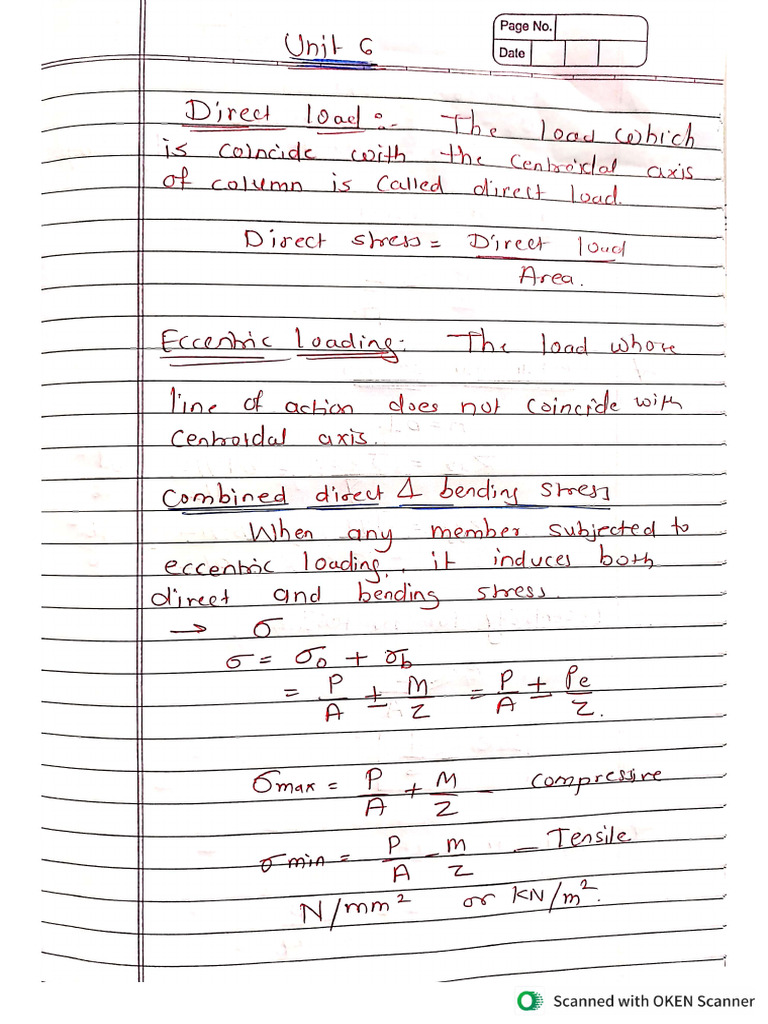 Page No.
Date
Unit 6
Direct load :- The load which
is coincide with the centroidal axis
of column is called direct load.
Direct stress = Direct load
Area.
Eccentric Loading:- The load whose
line of action does not coincide with
centroidal axis.
Combined direct & bending stress
When any member subjected to
eccentric loading, it induces both
direct and bending stress.
→ σ
σ = σo + σb
= P/A ± M/Z = P/A ± Pe/Z.
σmax = P/A + M/Z - compressive
σmin = P/A - M/Z - Tensile
N/mm² or KN/m².
Scanned with OKEN Scanner